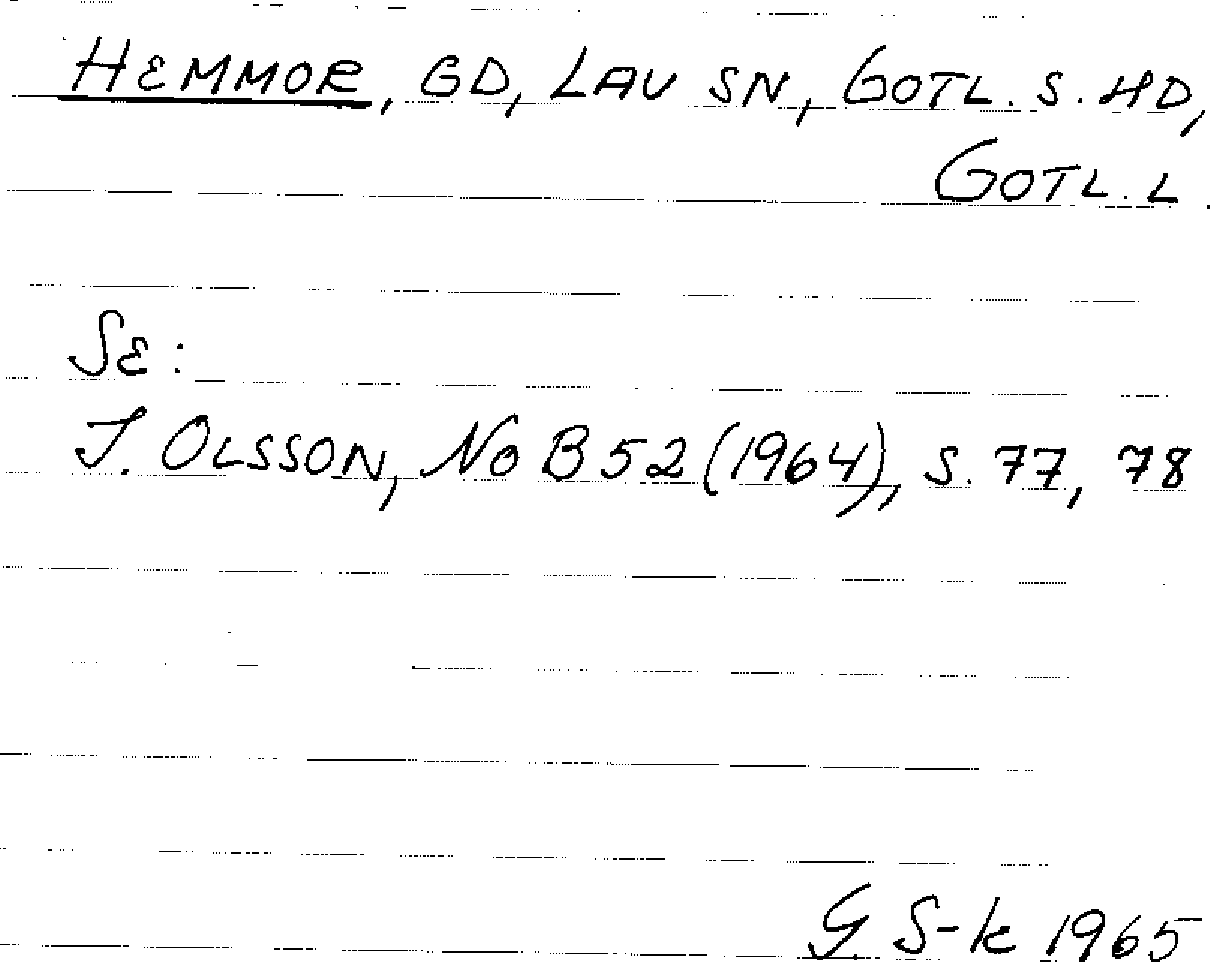 HEMMOR, GD, LAU SN, GOTL. S. HD,
GOTL. L.
SE:
I. OLSSON, NoB 52 (1964), S. 77, 78
G. S-k 1965